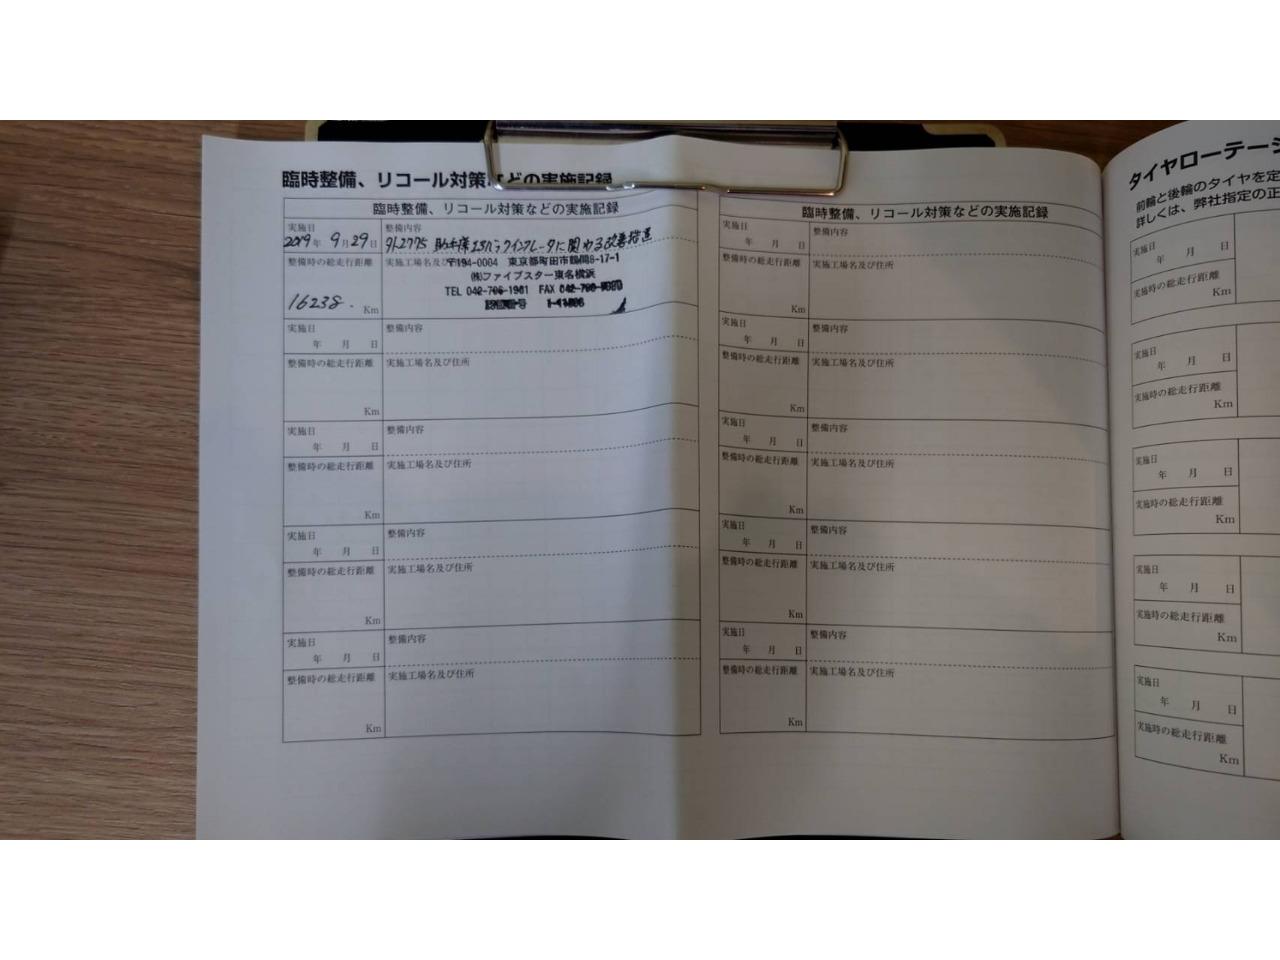 臨時整備、リコール対策などの実施記録
臨時整備、リコール対策などの実施記録
実施日
2019年 9月29日
整備内容
助手席エアバックインフレータに関わる改善措置
整備時の総走行距離
16238. Km
実施工場名及び
〒194-0004 東京都町田市鶴間8-17-1
㈱ファイブスター東名横浜
TEL 042-706-1981 FAX
実施日
年 月 日
整備内容
整備時の総走行距離
Km
実施工場名及び住所
実施日
年 月 日
整備内容
整備時の総走行距離
Km
実施工場名及び住所
実施日
年 月 日
整備内容
整備時の総走行距離
Km
実施工場名及び住所
実施日
年 月 日
整備内容
整備時の総走行距離
Km
実施工場名及び住所
臨時整備、リコール対策などの実施記録
実施日
年 月 日
整備内容
整備時の総走行距離
Km
実施工場名及び住所
実施日
年 月 日
整備内容
整備時の総走行距離
Km
実施工場名及び住所
実施日
年 月 日
整備内容
整備時の総走行距離
Km
実施工場名及び住所
実施日
年 月 日
整備内容
整備時の総走行距離
Km
実施工場名及び住所
実施日
年 月 日
整備内容
整備時の総走行距離
Km
実施工場名及び住所
タイヤローテーシ
前輪と後輪のタイヤを定
詳しくは、弊社指定の正
実施日
年 月 日
実施時の総走行距離
Km
実施日
年 月 日
実施時の総走行距離
Km
実施日
年 月 日
実施時の総走行距離
Km
実施日
年 月 日
実施時の総走行距離
Km
実施日
年 月 日
実施時の総走行距離
Km